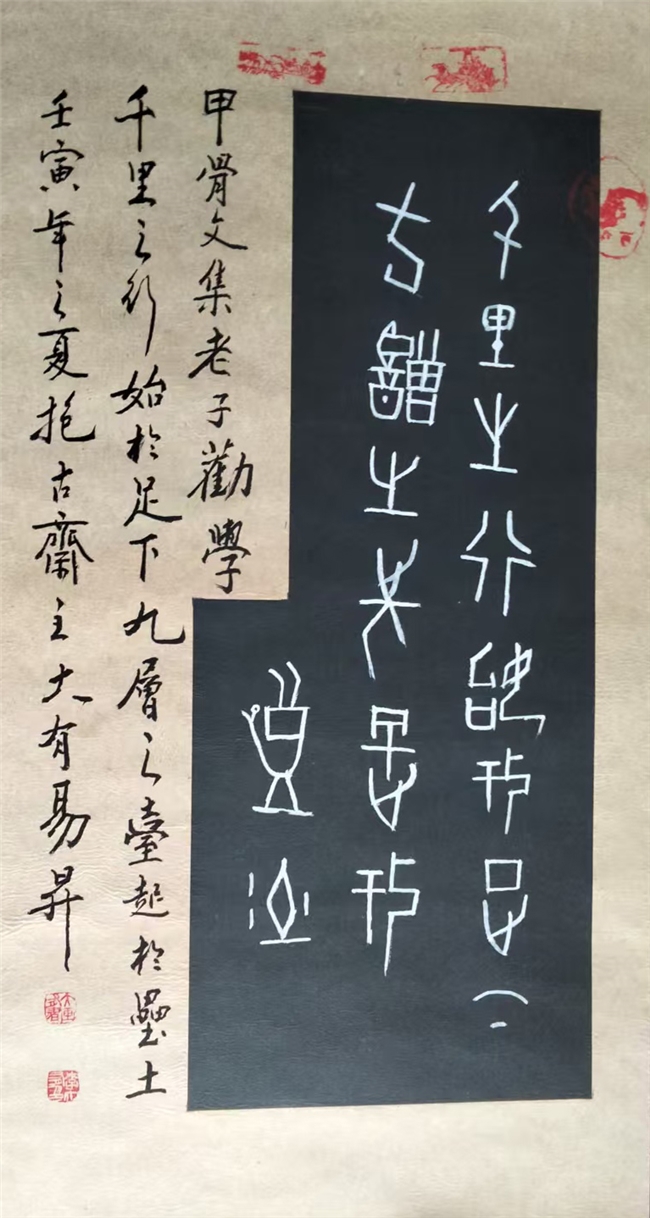 千里之行始於足下
九層之臺起於
壘土
甲骨文集老子勸學
千里之行始於足下九層之臺起於壘土
壬寅年之夏抱古齋主大有易昇